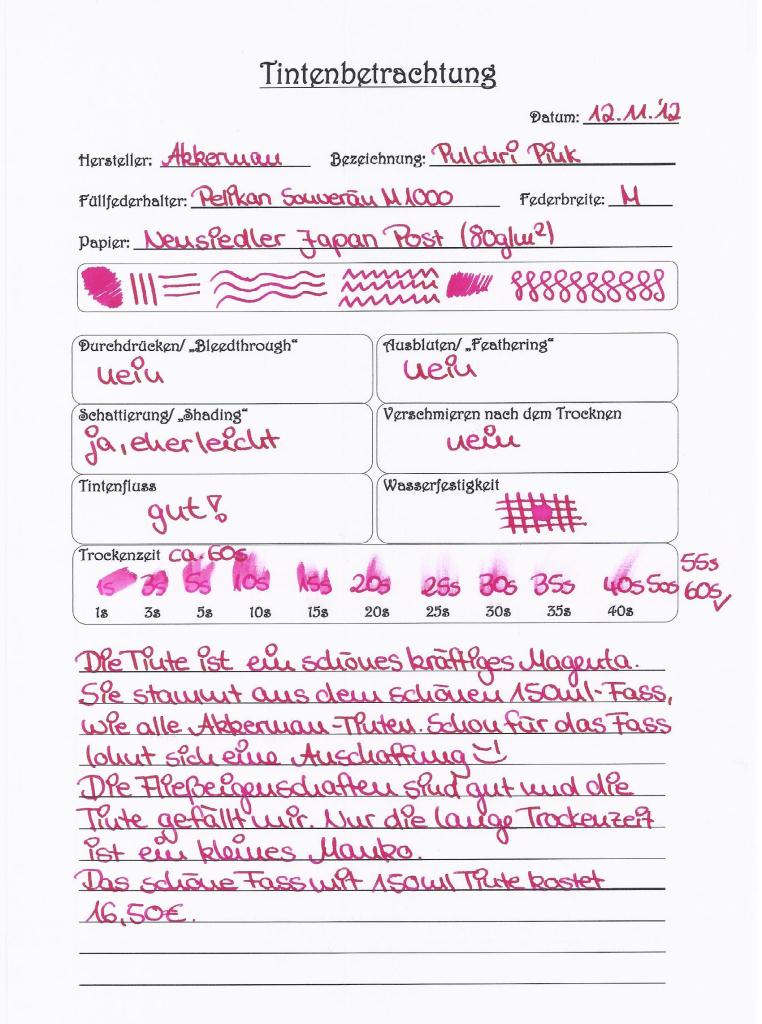 Tintenbetrachtung
Datum: 12.11.'12
Hersteller: Akkerman Bezeichnung: Pulchri Pink
Füllfederhalter: Pelikan Souverän M1000 Federbreite: M
Papier: Neusiedler Japan Post (80g/m²)
Durchdrücken/ „Bleedthrough“ Ausbluten/ „Feathering“
nein nein
Schattierung/ „Shading“ Verschmieren nach dem Trocknen
ja, eher leicht nein
Tintenfluss Wasserfestigkeit
gut!
Trockenzeit ca. 60s
1s 3s 5s 10s 15s 20s 25s 30s 35s 40s 50s 55s
60s ✓
1s 3s 5s 10s 15s 20s 25s 30s 35s 40s
Die Tinte ist ein schönes kräftiges Magenta.
Sie stammt aus dem schönen 150ml-Fass,
wie alle Akkerman-Tinten. Schon für das Fass
lohnt sich eine Anschaffung
Die Fließeigenschaften sind gut und die
Tinte gefällt mir. Nur die lange Trockenzeit
ist ein kleines Manko.
Das schöne Fass mit 150ml Tinte kostet
16,50€.